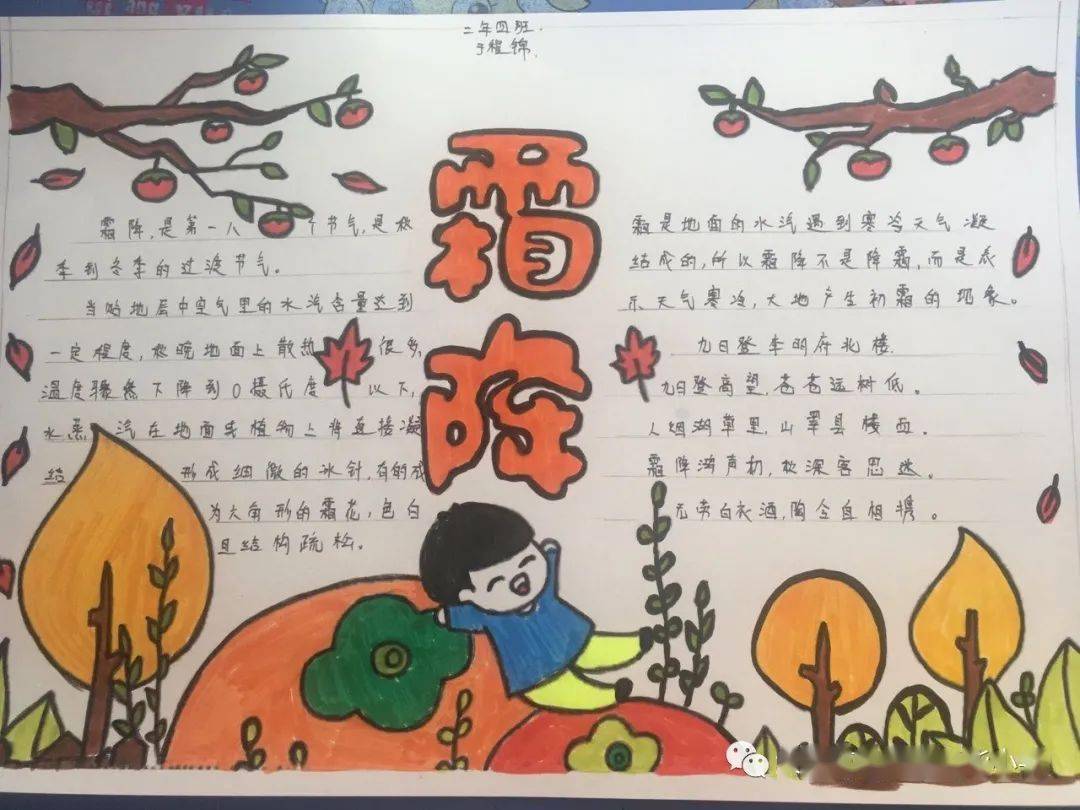 二年四班
于程锦
霜降
霜降,是第一八个节气,是秋
季到冬季的过渡节气。
当哈地层中空气里的水汽含量达到
一定程度,秋晚地面上散热很多,
温度骤然下降到0摄氏度以下,
水蒸汽在地面或植物上将直接凝
结形成细微的冰针,有的成
为六角形的霜花,色白
且结构疏松。
霜是地面的水汽遇到寒冷天气凝
结成的,所以霜降不是降霜,而是表
示天气寒冷,大地产生初霜的现象。
九日登李明府北楼
九日登高望,苍苍远树低。
人烟湖草里,山翠县楼西。
霜降鸿声切,秋深客思迷。
无劳白衣酒,陶令自相携。